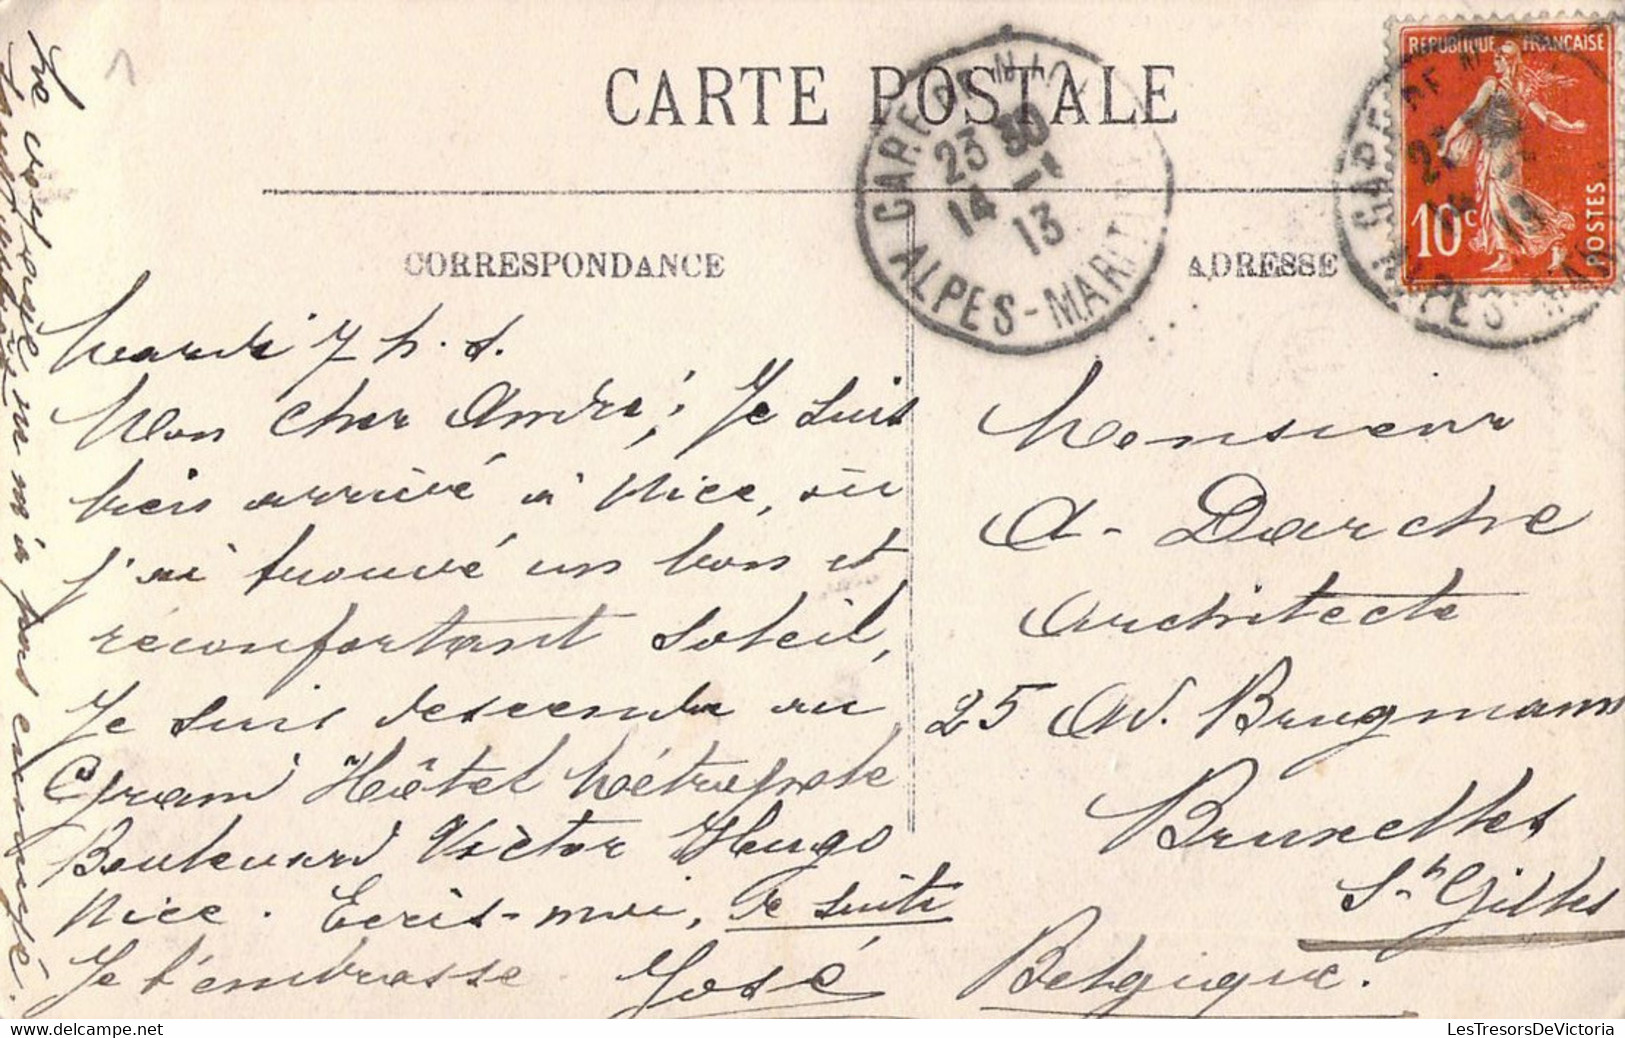 CARTE POSTALE
CORRESPONDANCE
ADRESSE
GARE DE NICE
23 30
14 -1
13
ALPES-MARIT
REPUBLIQUE FRANCAISE
10c
POSTES
Mardi 7 h. s.
Mon cher André, Je suis
bien arrivé à Nice, où
j'ai trouvé un bon et
réconfortant soleil,
Je suis descendu au
Grand Hôtel Métropole
Boulevard Victor Hugo
Nice. Ecris-moi, de suite
Je t'embrasse José
Monsieur
A. Darche
Architecte
25 Av. Brugmann
Bruxelles
St Gilles
Belgique.
m'a pas
LesTresorsDeVictoria
www.delcampe.net